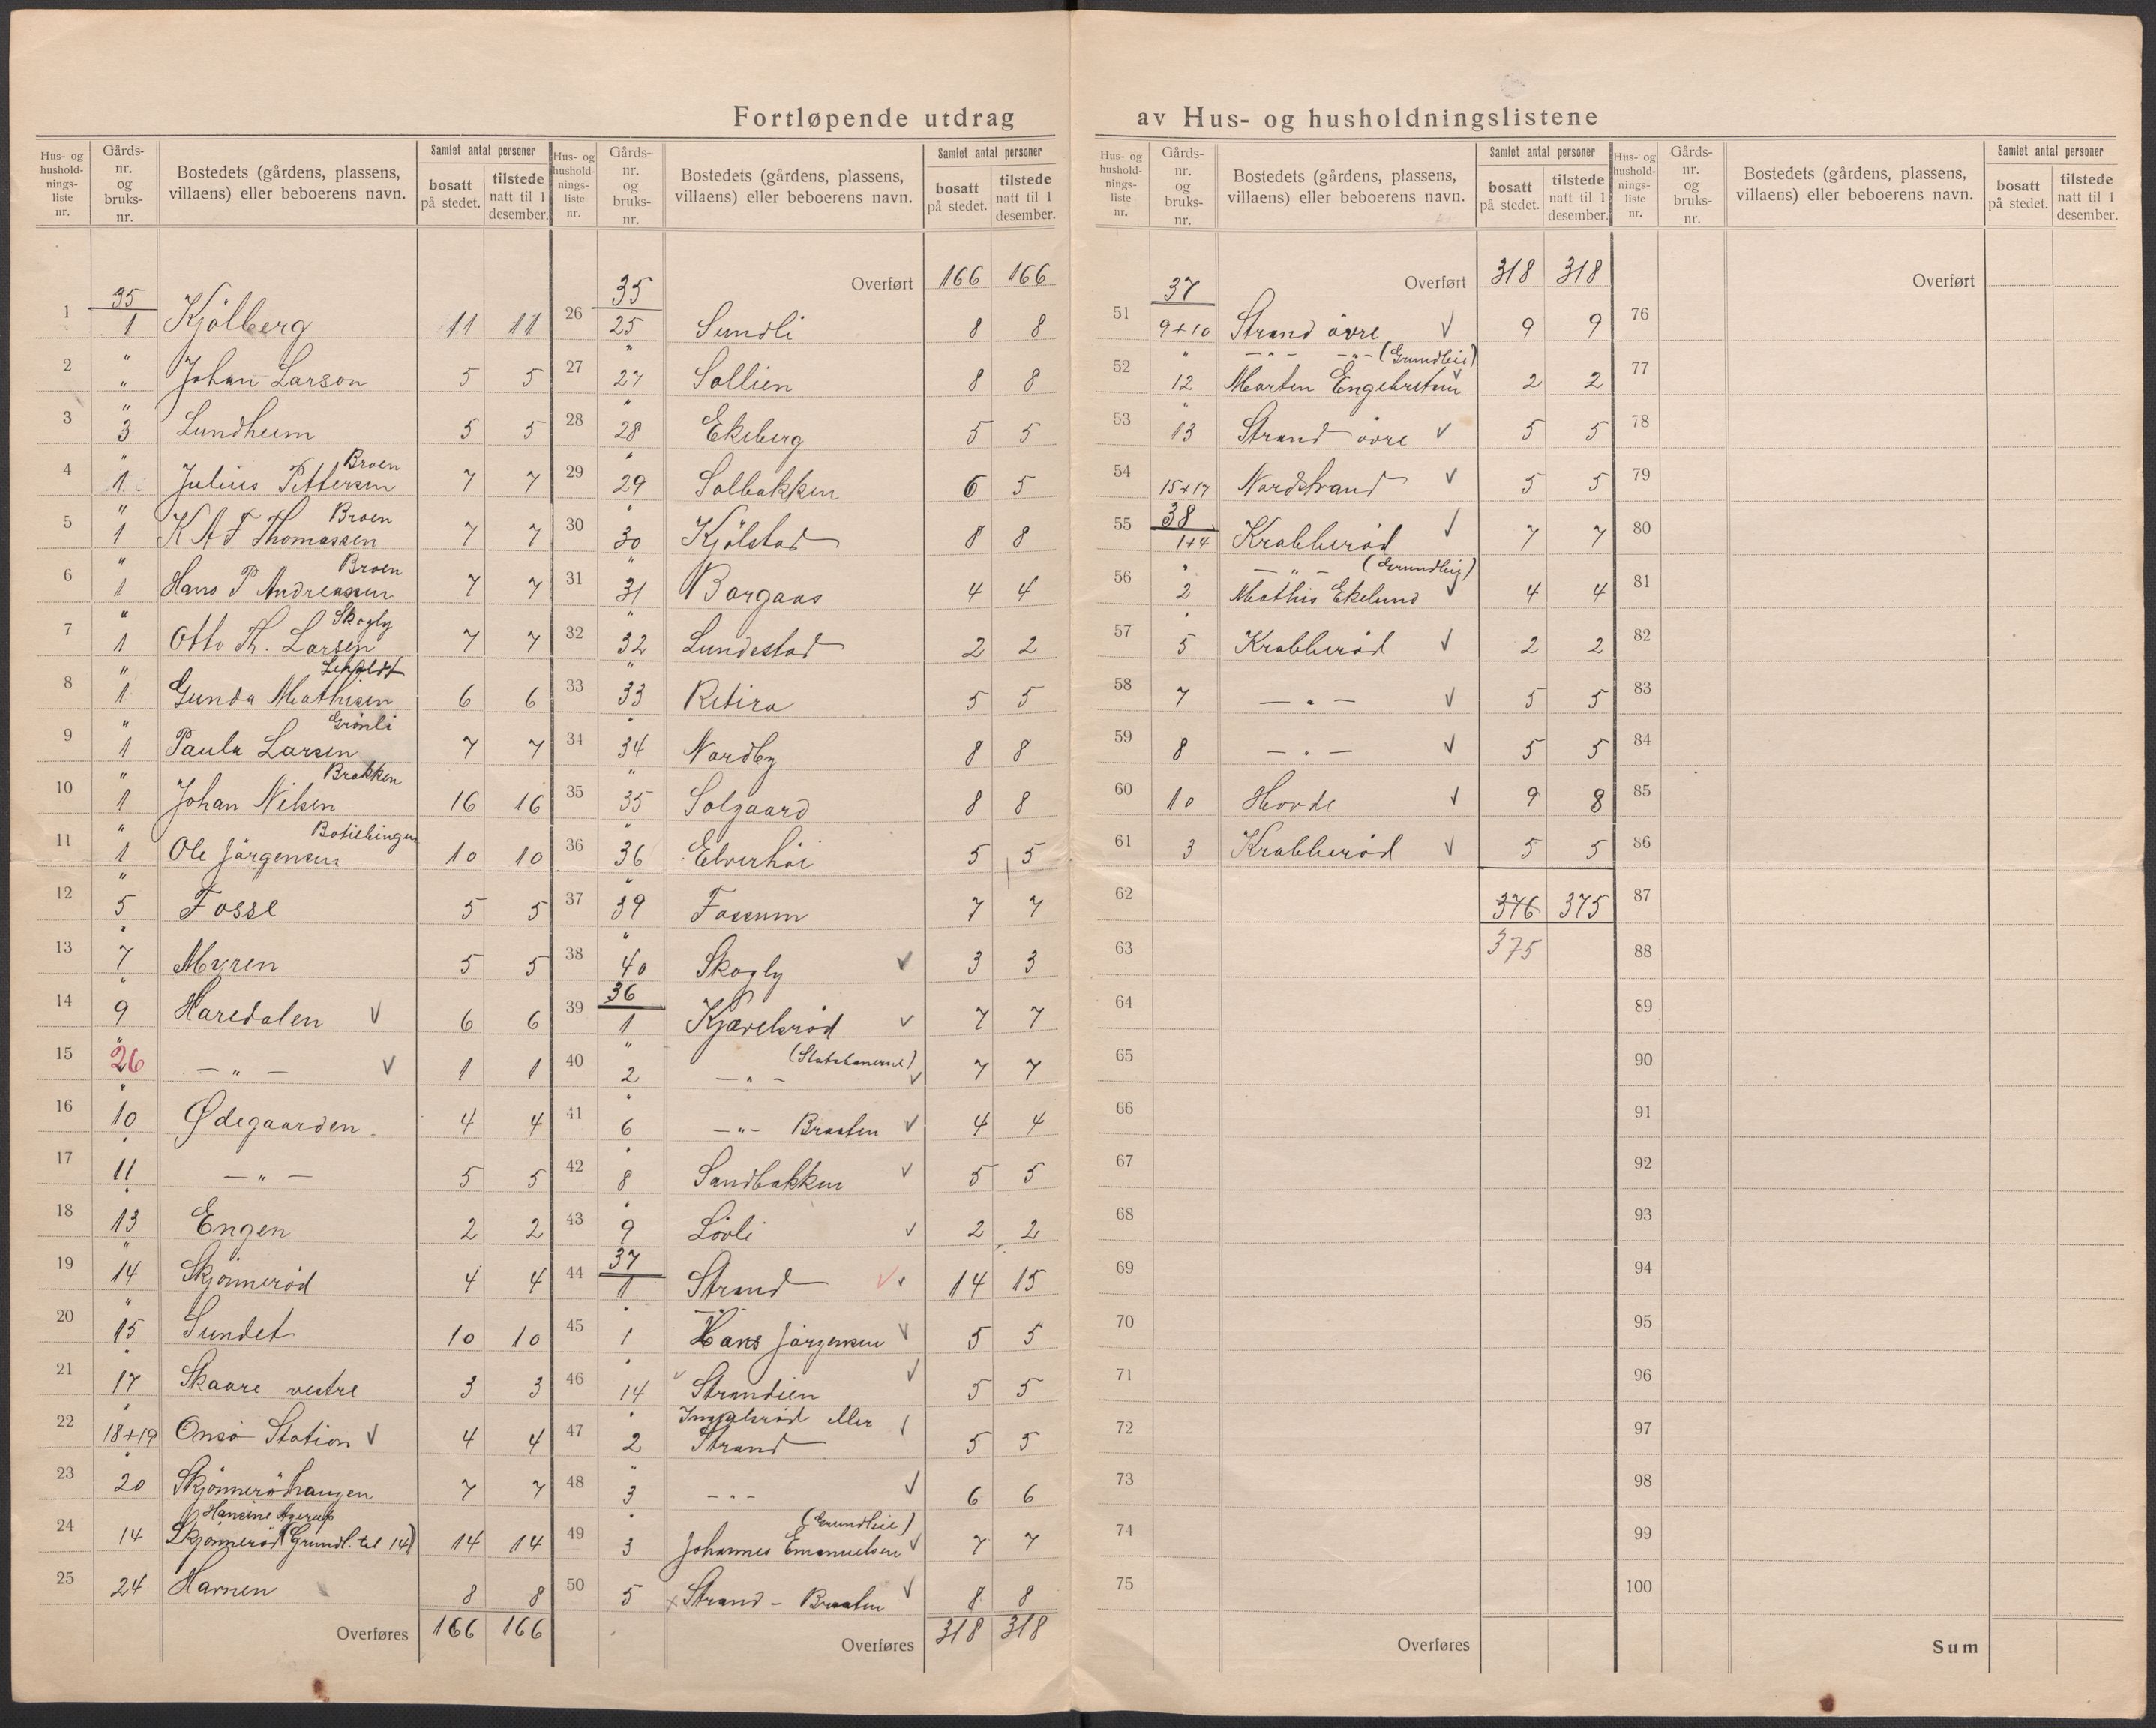 Fortløpende utdrag av Hus- og husholdningslistene
Hus- og husholdnings-liste nr. | Gårds-nr. og bruks-nr. | Bostedets (gårdens, plassens, villaens) eller beboerens navn. | Samlet antal personer | bosatt på stedet. | tilstede natt til 1 desember.
35
1 1 Kjölberg 11 11
2 " " Johan Larson 5 5
3 " 3 Lundheim 5 5
Broen
4 " 1 Julius Pettersen 7 7
Broen
5 " 1 K A F Thomassen 7 7
Broen
6 " 1 Hans P Andreassen 7 7
Skogly
7 " 1 Otto Th. Larsen 7 7
8 " 1 Gunda Mathisen 6 6
Grönli
9 " 1 Paula Larsen 7 7
Brakken
10 " 1 Johan Nilsen 16 16
11 " 1 Ole Jörgensen 10 10
12 " 5 Fosse 5 5
13 " 7 Myren 5 5
14 " 9 Haredalen √ 6 6
15 " 26 — " — √ 1 1
16 " 10 Ødegaarden. 4 4
17 " 11 — " — 5 5
18 " 13 Engen 2 2
19 " 14 Skjönneröd 4 4
20 " 15 Sundet 10 10
21 " 17 Skaare vestre 3 3
22 " 18+19 Onsö Station √ 4 4
23 " 20 Skjönnerödhaugen 7 7
Hansine Agerup
24 14 Skjönneröd (Grundl. til 14) 14 14
25 24 Hamen 8 8
Overføres 166 166
Hus- og husholdnings-liste nr. | Gårds-nr. og bruks-nr. | Bostedets (gårdens, plassens, villaens) eller beboerens navn. | Samlet antal personer | bosatt på stedet. | tilstede natt til 1 desember.
Overført 166 166
35
26 25 Sundli 8 8
27 " 27 Sollien 8 8
28 " 28 Ekeberg 5 5
29 " 29 Solbakken 6 5
30 " 30 Kjölstad 8 8
31 " 31 Borgaas 4 4
32 " 32 Lundestad 2 2
33 " 33 Retiro 5 5
34 " 34 Nordby 8 8
35 " 35 Solgaard 8 8
36 " 36 Elverhöi 5 5
37 " 39 Fossum 7 7
38 " 40 Skogly √ 3 3
36
39 1 Kjærelsröd √ 7 7
(Statsbanerne)
40 " 2 — " — √ 7 7
41 " 6 — " — Braaten √ 4 4
42 " 8 Sandbakken √ 5 5
43 " 9 Lövli √ 2 2
37
44 1 Strand √ √ 14 15
45 " 1 Hans Jörgensen √ 5 5
46 " 14 √ Strandien √ 5 5
eller √
47 " 2 Strand 5 5
48 " 3 — " — √ 6 6
(Grundleie)
49 " 3 Johannes Emanuelsen √ 7 7
50 5 x Strand – Braaten √ 8 8
Overføres 318 318
Hus- og husholdnings-liste nr. | Gårds-nr. og bruks-nr. | Bostedets (gårdens, plassens, villaens) eller beboerens navn. | Samlet antal personer | bosatt på stedet. | tilstede natt til 1 desember.
Overført 318 318
37
51 9+10 Strand övre √ 9 9
— " — — " — (Grundleie)
52 " 12 Marten Engebretsen √ 2 2
53 " 13 Strand övre √ 5 5
54 15+17 Nordstrand √ 5 5
38
55 1+4 Krabberöd √ 7 7
— " — (Grundleie)
56 " 2 Mathis Ekelund √ 4 4
57 " 5 Krabberöd √ 2 2
58 7 — " — √ 5 5
59 8 — " — √ 5 5
60 10 Hovde √ 9 8
61 3 Krabberöd √ 5 5
62 376 375
63 375
64
65
66
67
68
69
70
71
72
73
74
75
Overføres
Hus- og husholdnings-liste nr. | Gårds-nr. og bruks-nr. | Bostedets (gårdens, plassens, villaens) eller beboerens navn. | Samlet antal personer | bosatt på stedet. | tilstede natt til 1 desember.
Overført
76
77
78
79
80
81
82
83
84
85
86
87
88
89
90
91
92
93
94
95
96
97
98
99
100
Sum